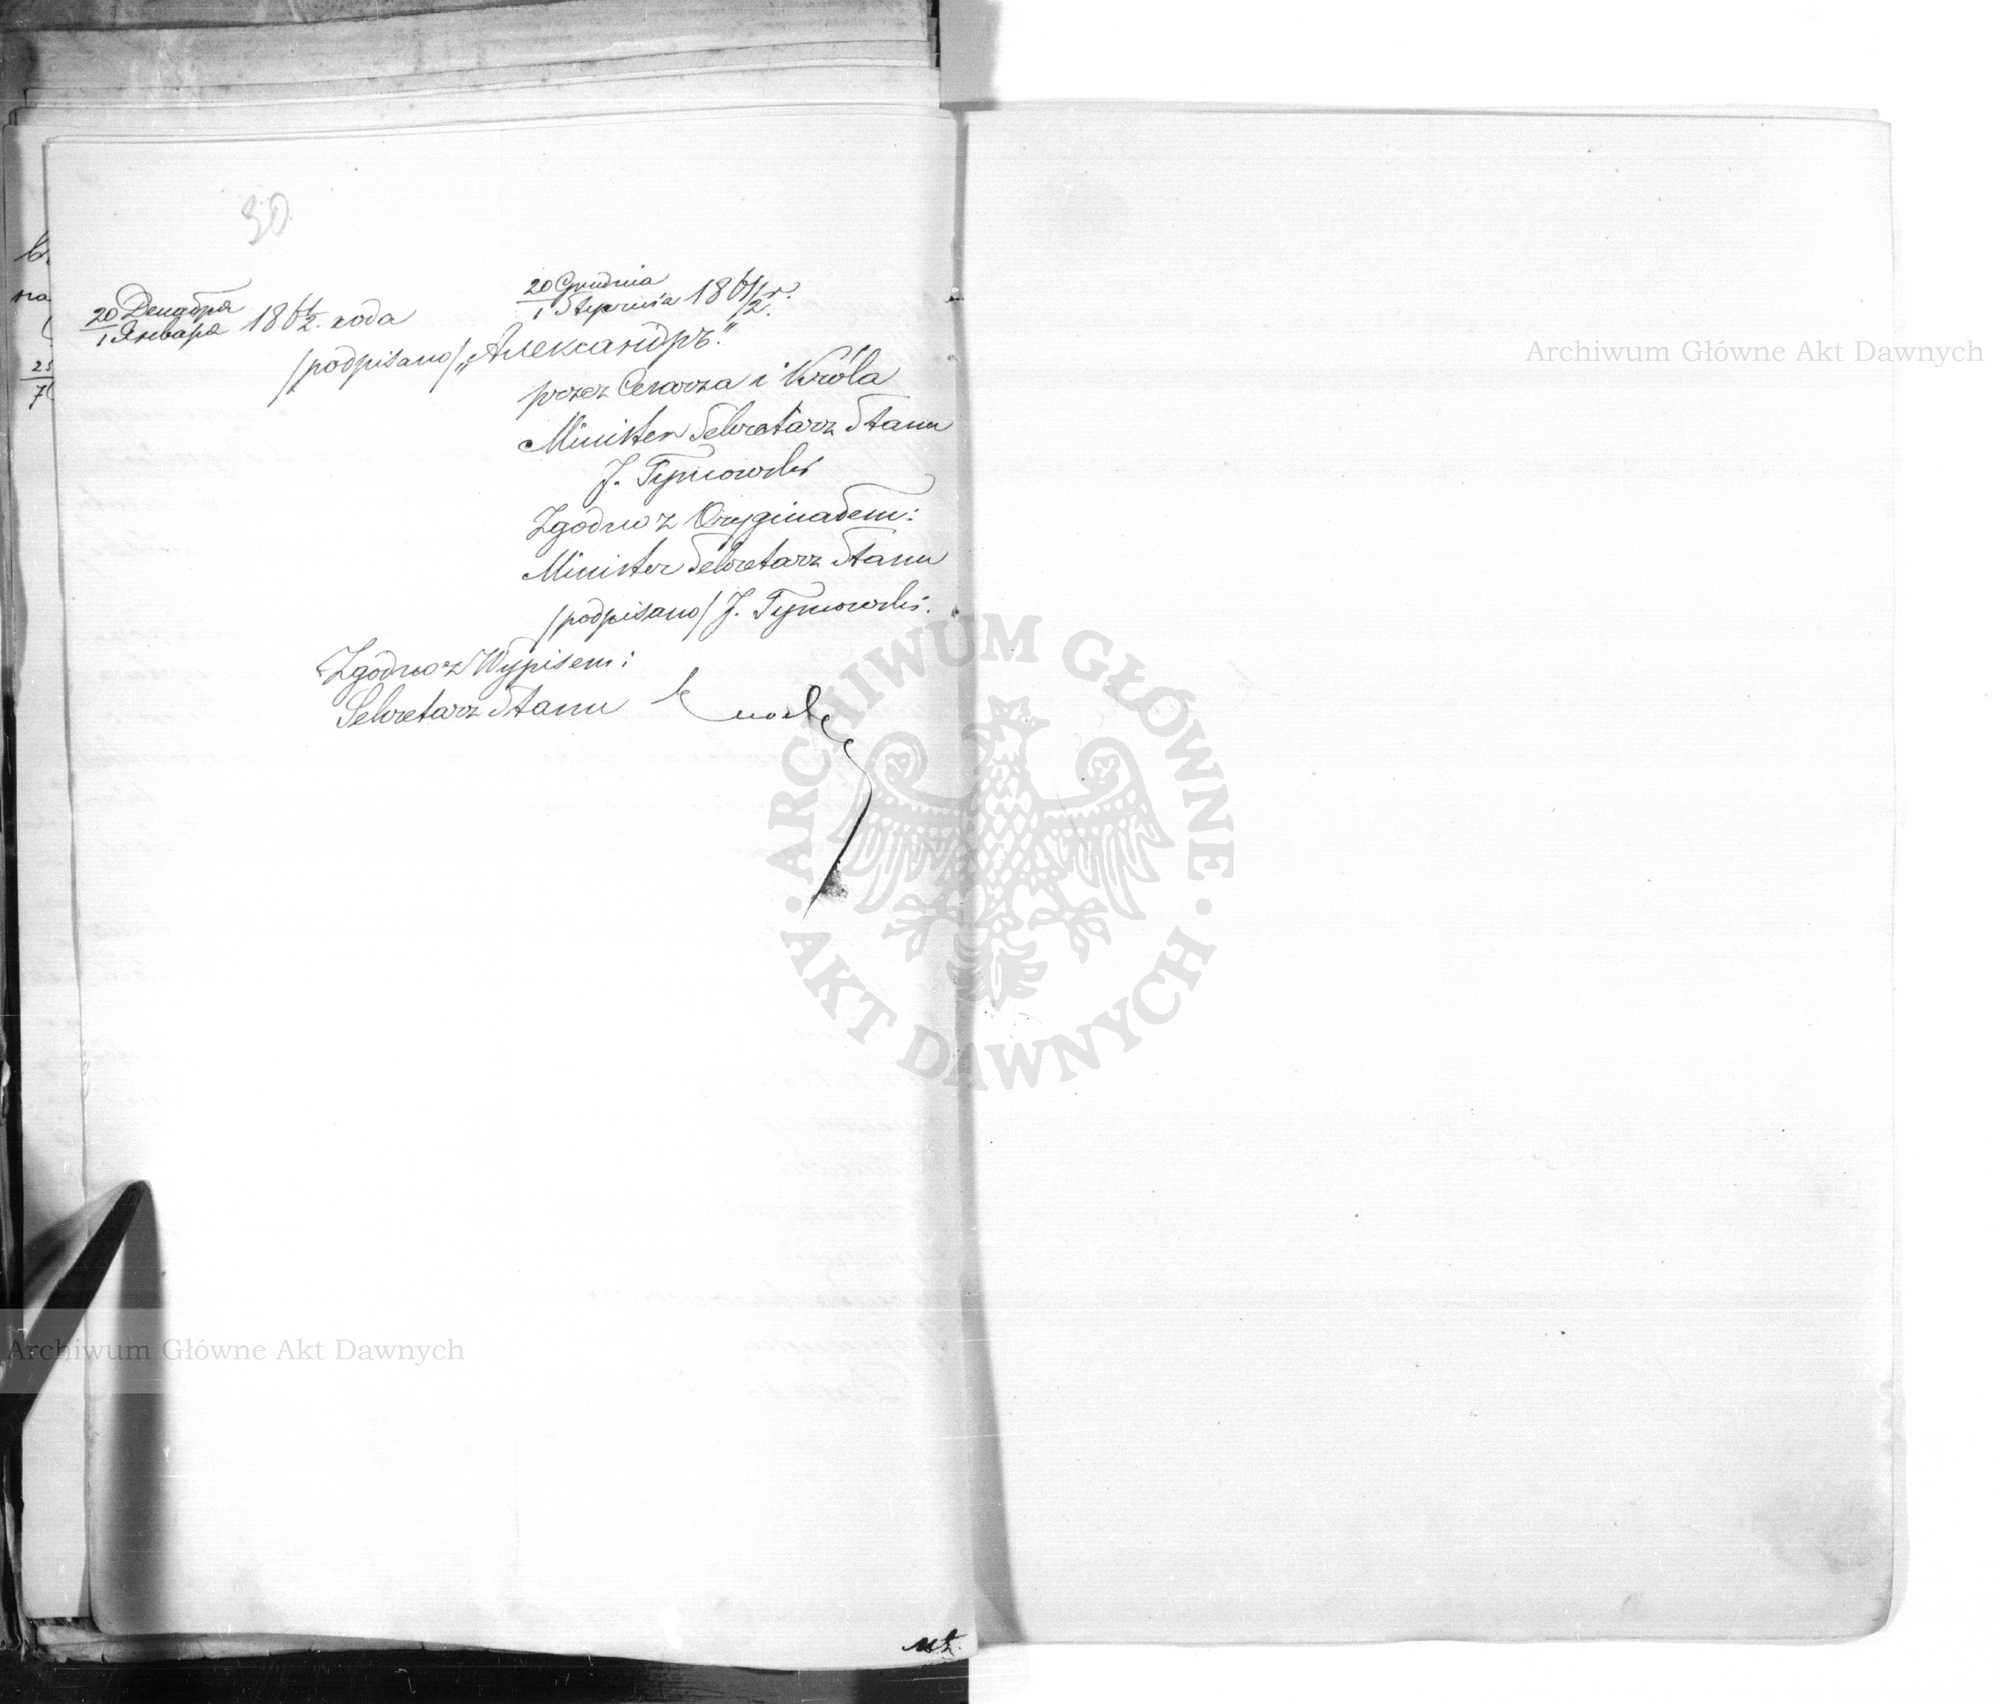 30
20 Декабря / 1 Января 1861/2. года
20 Grudnia / 1 Stycznia 1861/2 r.
/podpisano/ „Александръ."
przez Cesarza i Króla
Minister Sekretarz Stanu
J. Tymowski
Zgodno z Oryginałem:
Minister Sekretarz Stanu
/podpisano/ J. Tymowski.
Zgodno z Wypisem:
Sekretarz Stanu
Archiwum Główne Akt Dawnych
ARCHIWUM GŁÓWNE
AKT DAWNYCH
Archiwum Główne Akt Dawnych